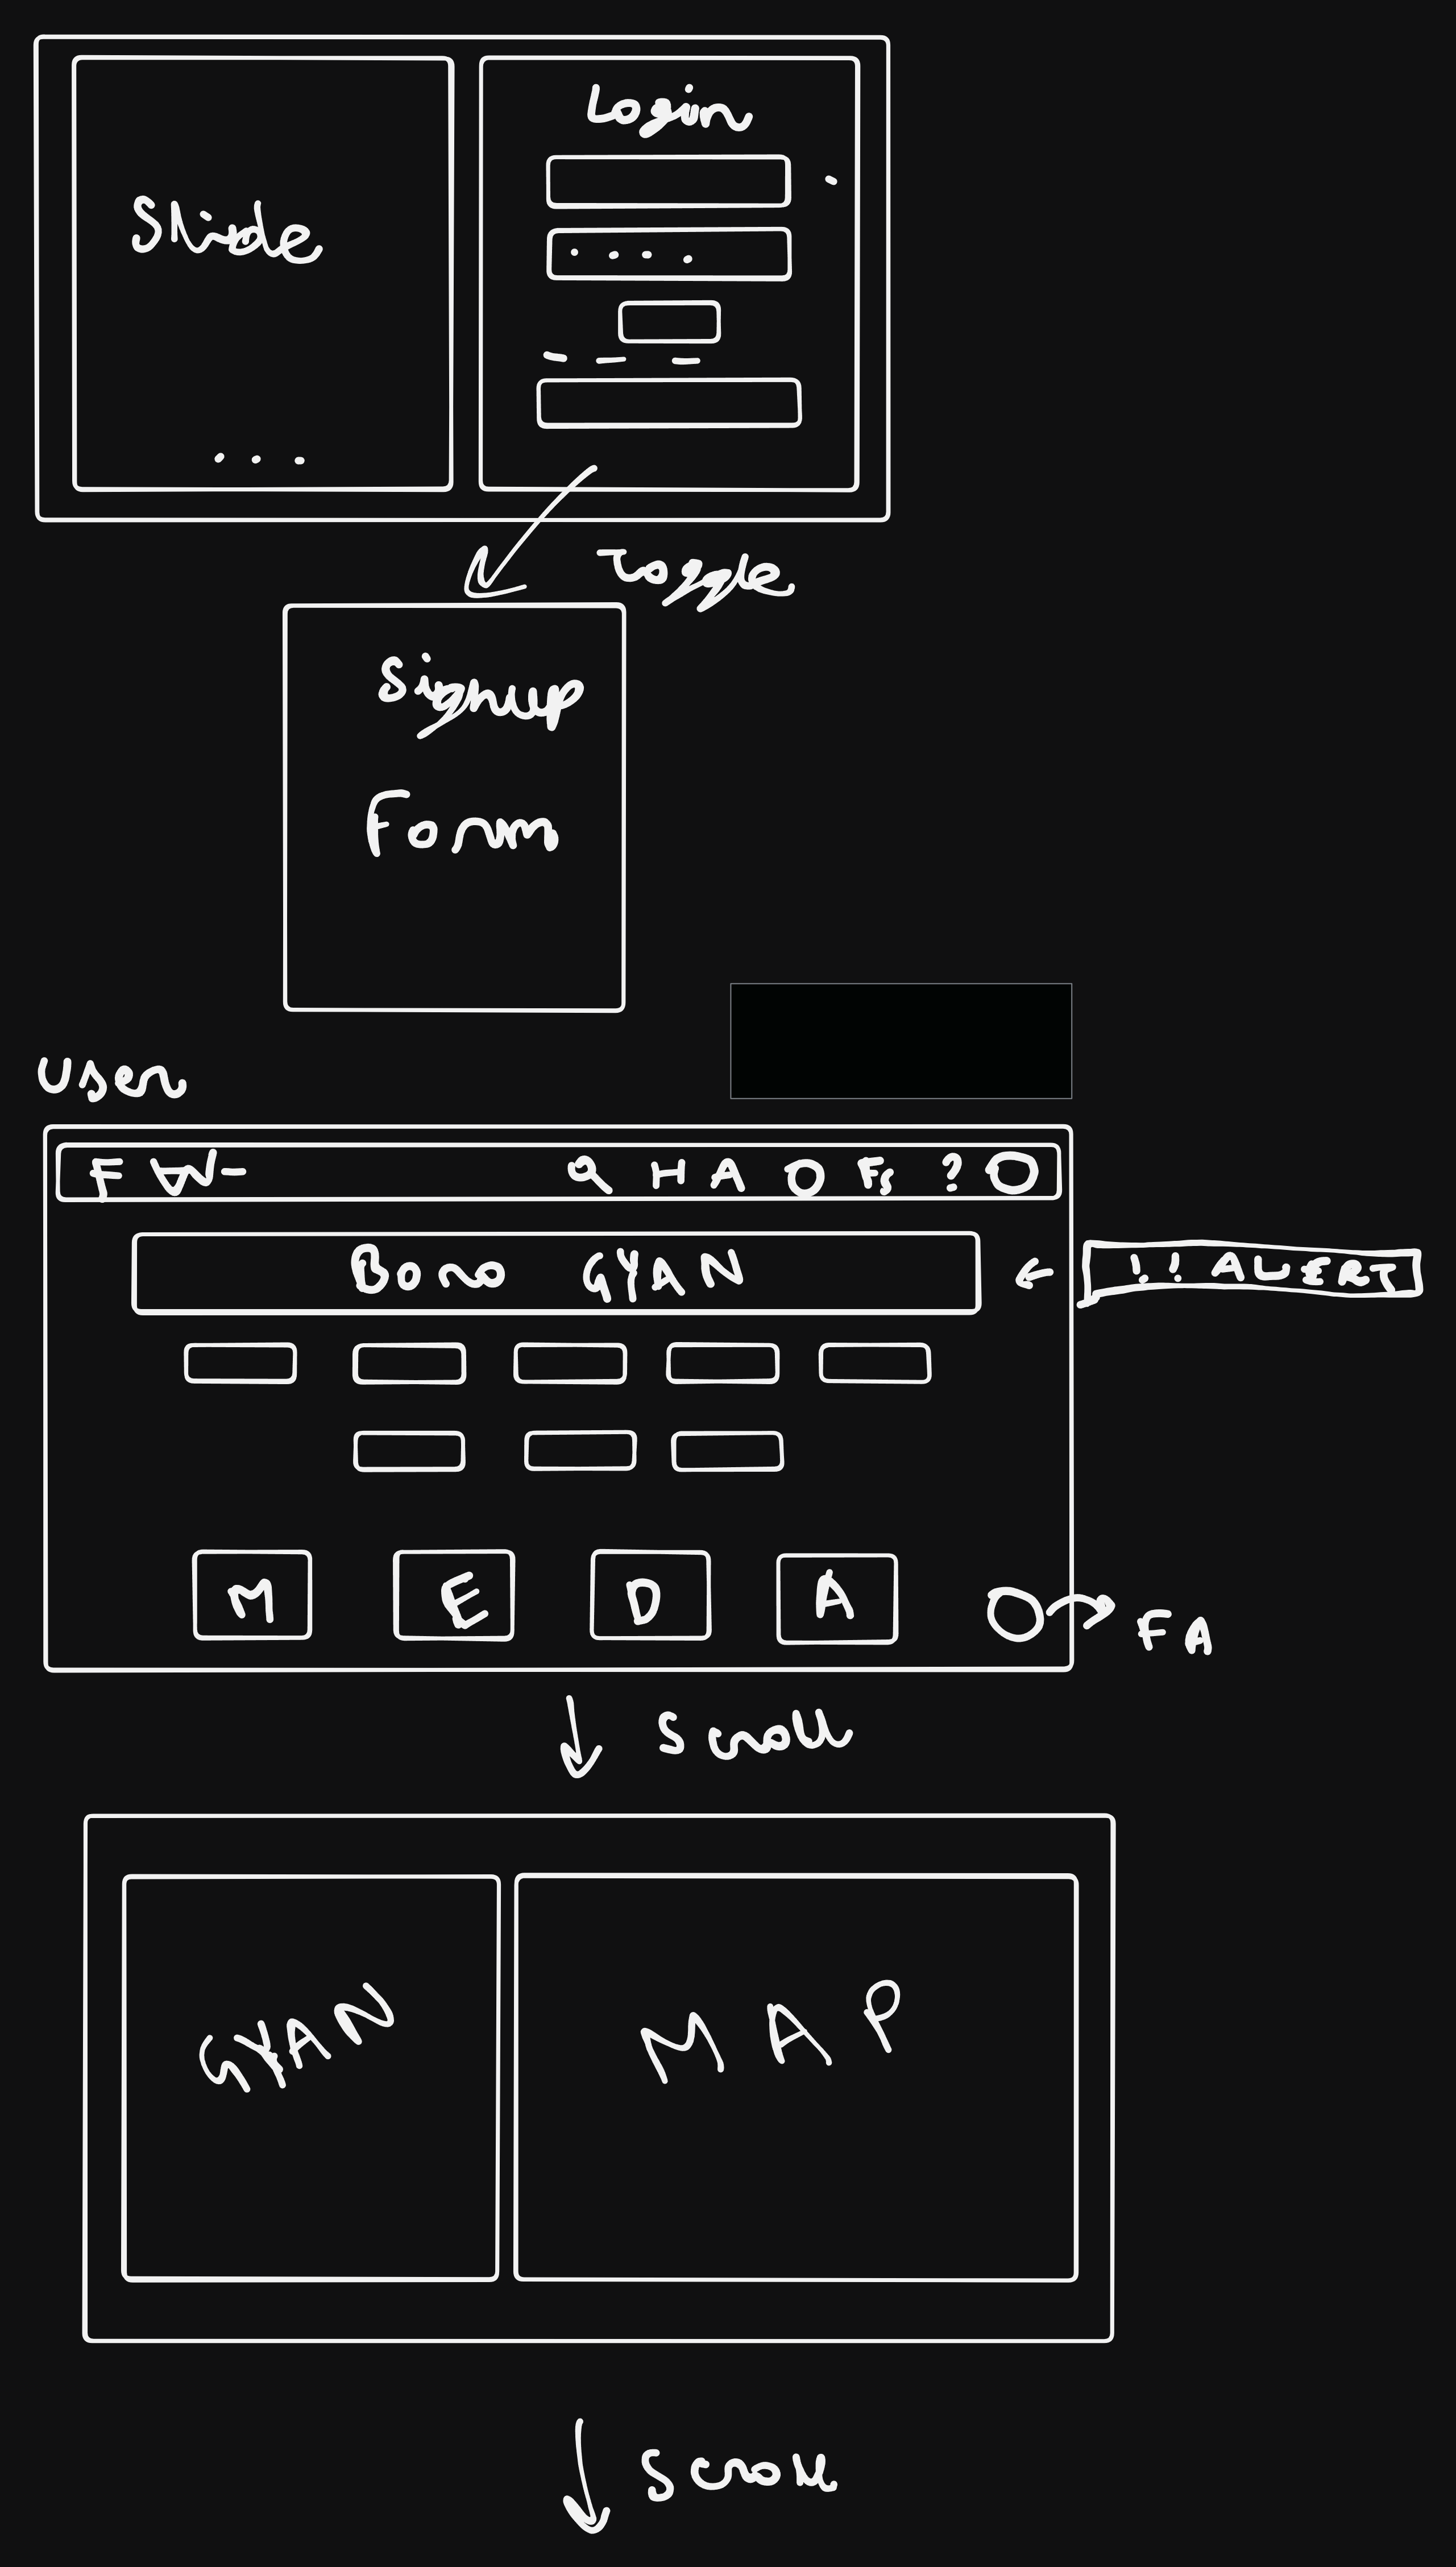 Login
Slide
Toggle
Signup
Form
User
H A O Fs ?
Boro GYAN
!! ALERT
M E D A
FA
Scroll
GYAN
MAP
Scroll